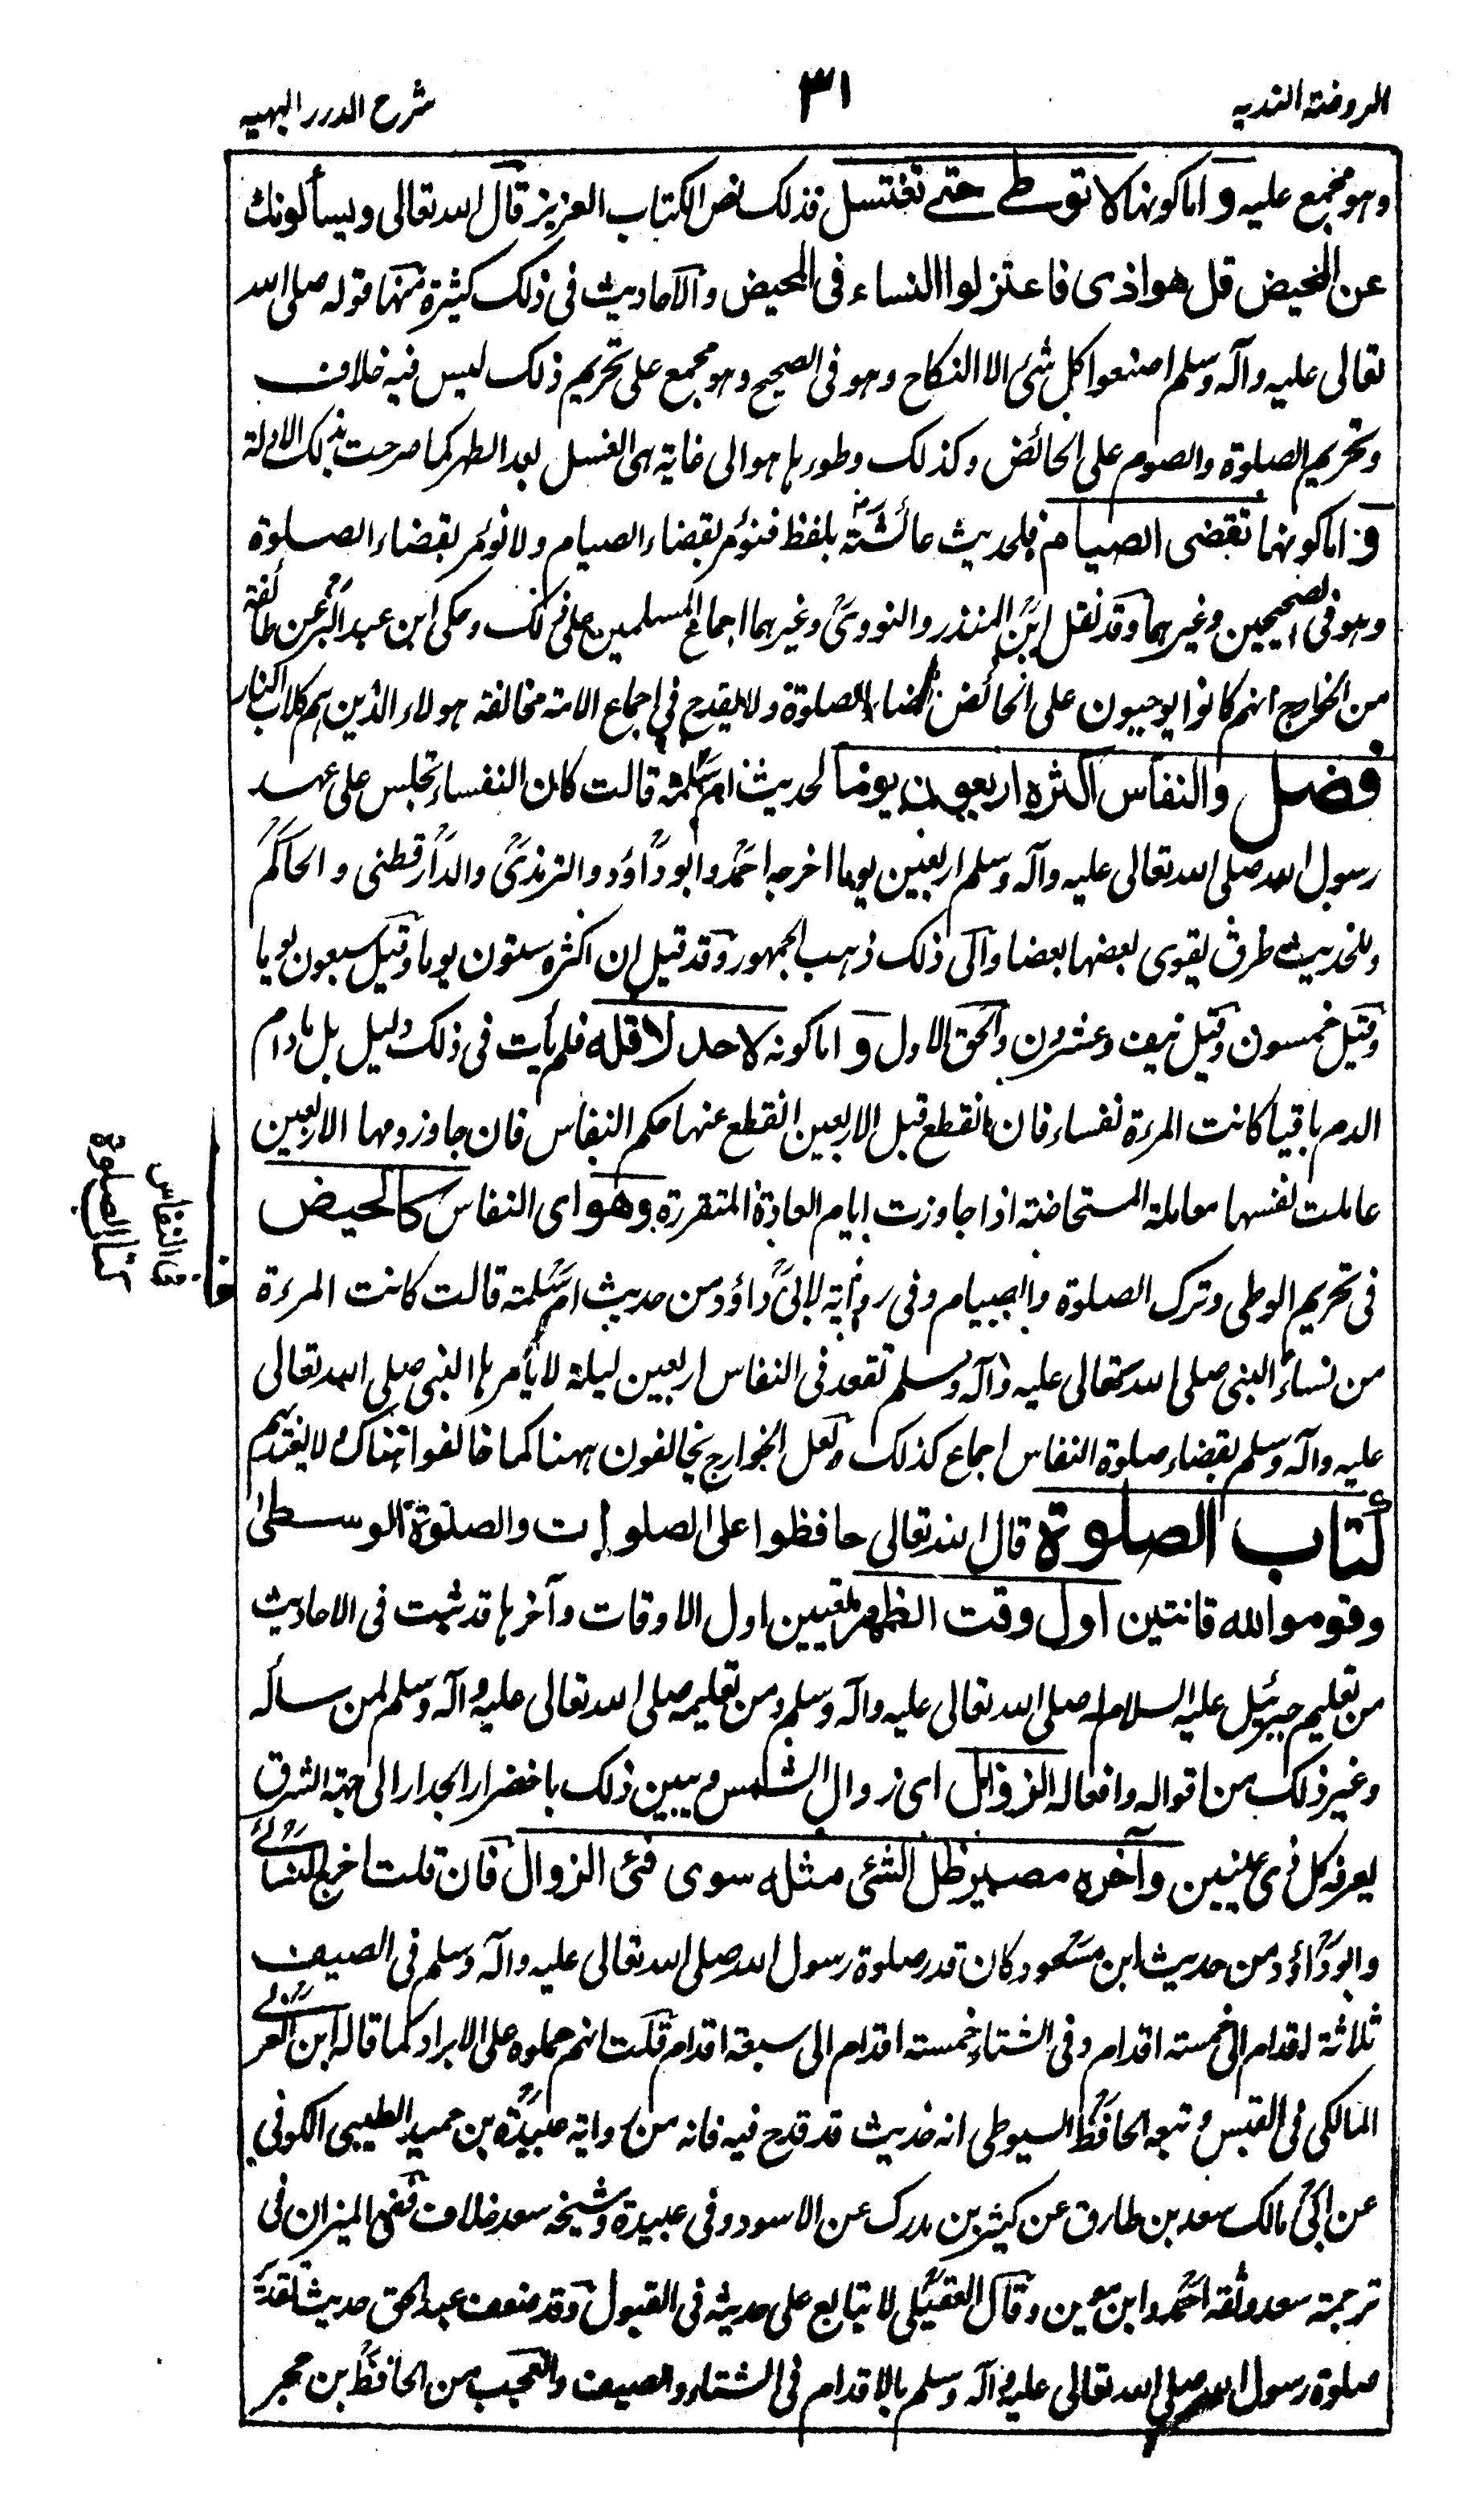 الروضة الندیه
۳۱
شرح الدرر البهیه
وهو مجمع علیه و اما کونها لا توطی حتی تغتسل فذلک نص الکتاب العزیز قال الله تعالی ویسألونک
عن المحیض قل هو اذی فاعتزلوا النساء فی المحیض والاحادیث فی ذلک کثیرة منها قوله صلی الله
تعالی علیه وآله وسلم اصنعوا کل شیء الا النکاح وهو فی الصحیح وهو مجمع علی تحریم ذلک لیس فیه خلاف
وتحریم الصلوة والصوم علی الحائض وکذلک وطورها هو الی غایة هی الغسل بعد الطهر کما صرحت بذلک الادلة
و اما کونها تقضی الصیام فلحدیث عائشة رض بلفظ فنؤمر بقضاء الصیام ولا نؤمر بقضاء الصلوة
وهو فی الصحیحین وغیرهما وقد نقل ابن المنذر والنووی وغیرهما اجماع المسلمین علی ذلک وحکی ابن عبد البر عن طائفة
من الخوارج انهم کانوا یوجبون علی الحائض قضاء الصلوة ولا یقدح فی اجماع الامة مخالفة هولاء الذین هم کلاب النار
فصل والنفاس اکثره اربعون یوما لحدیث ام سلمة قالت کان النفساء تجلس علی عهد
رسول الله صلی الله تعالی علیه وآله وسلم اربعین یوما اخرجه احمد وابو داؤد والترمذی والدارقطنی والحاکم
وللحدیث طرق یقوی بعضها بعضا والی ذلک ذهب الجمهور وقد قیل ان اکثره ستون یوما وقیل سبعون یوما
وقیل خمسون وقیل نیف وعشرون والحق الاول و اما کونه لا حد لاقله فلم یأت فی ذلک دلیل بل مادام
الدم باقیا کانت المرءة نفساء فان انقطع قبل الاربعین انقطع عنها حکم النفاس فان جاوز دمها الاربعین
عاملت نفسها معاملة المستحاضة اذا جاوزت ایام العادة المتقررة وهو ای النفاس کالحیض
فی تحریم الوطی وترک الصلوة والصیام وفی روایة لابی داؤد من حدیث ام سلمة قالت کانت المرءة
من نساء النبی صلی الله تعالی علیه وآله وسلم تقعد فی النفاس اربعین لیلة لا یأمرها النبی صلی الله تعالی
علیه وآله وسلم بقضاء صلوة النفاس اجماع کذلک ولعل الخوارج یخالفون ههنا کما خالفوا هناک ولا یعتد بهم
کتاب الصلوة قال الله تعالی حافظوا علی الصلوات والصلوة الوسطی
وقوموا لله قانتین اول وقت الظهر تعیین اول الاوقات وآخرها قد ثبت فی الاحادیث
من تعلیم جبرئیل علیه السلام له صلی الله تعالی علیه وآله وسلم ومن تعلیمه صلی الله تعالی علیه وآله وسلم لمن سأله
وغیر ذلک من اقواله وافعاله الزوال ای زوال الشمس ویبین ذلک باخضرار الجدار الی جهة الشرق
یعرفه کل ذی عینین وآخره مصیر ظل الشئ مثله سوی فئ الزوال فان قلت اخرج النسائی
وابو داؤد من حدیث ابن مسعود کان قدر صلوة رسول الله صلی الله تعالی علیه وآله وسلم فی الصیف
ثلاثة اقدام الی خمسة اقدام وفی الشتاء خمسة اقدام الی سبعة اقدام قلت انهم حملوه علی الابراد کما قاله ابن العربی
المالکی فی القبس وتبعه الحافظ السیوطی انه حدیث قد قدح فیه فانه من روایة عبیدة بن حمید الطیبی الکوفی
عن ابی مالک سعد بن طارق عن کثیر بن مدرک عن الاسود وفی عبیدة وشیخه سعد خلاف ففی المیزان فی
ترجمة سعد وثقه احمد وابن معین وقال العقیلی لا یتابع علی حدیثه فی القبول وقد ضعف عبد الحق حدیث تقدیر
صلوة رسول الله صلی الله تعالی علیه وآله وسلم بالاقدام فی الشتاء والصیف والعجب من الحافظ بن حجر